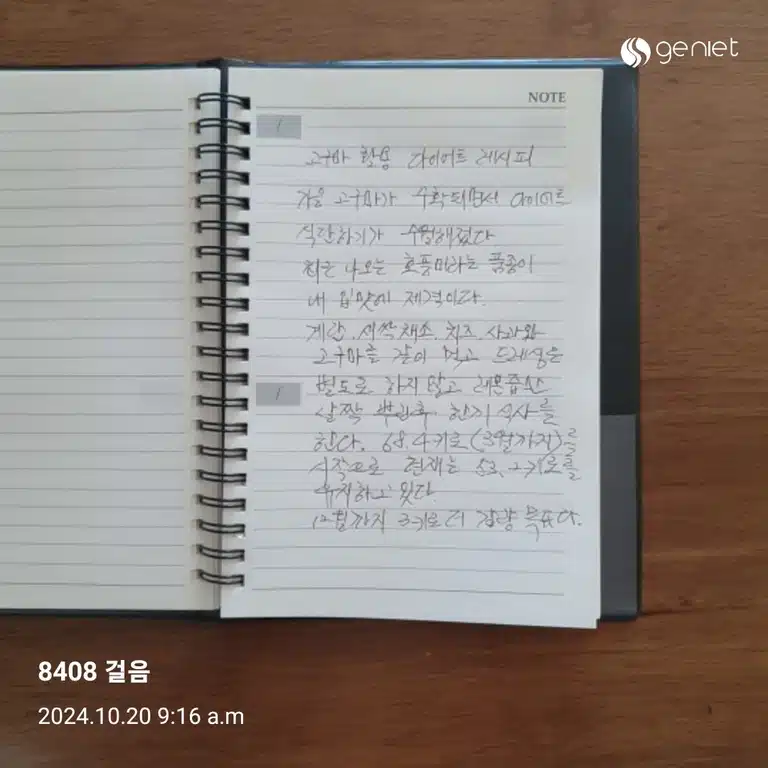 geniet
NOTE
1
고구마 활용 다이어트 레시피
가을 고구마가 수확되면서 다이어트
식단하기가 수월해졌다
최근 나오는 호풍미라는 품종이
내 입맛에 제격이다.
계란, 새싹채소, 치즈, 사과와
고구마를 같이 먹고 드레싱은
1
별도로 하지 않고 레몬즙만
살짝 뿌린후 한끼 식사를
한다. 68.4키로(3월까지)를
시작으로 현재는 53.2키로를
유지하고 있다
12월까지 3키로 더 감량 목표다.
8408 걸음
2024.10.20 9:16 a.m